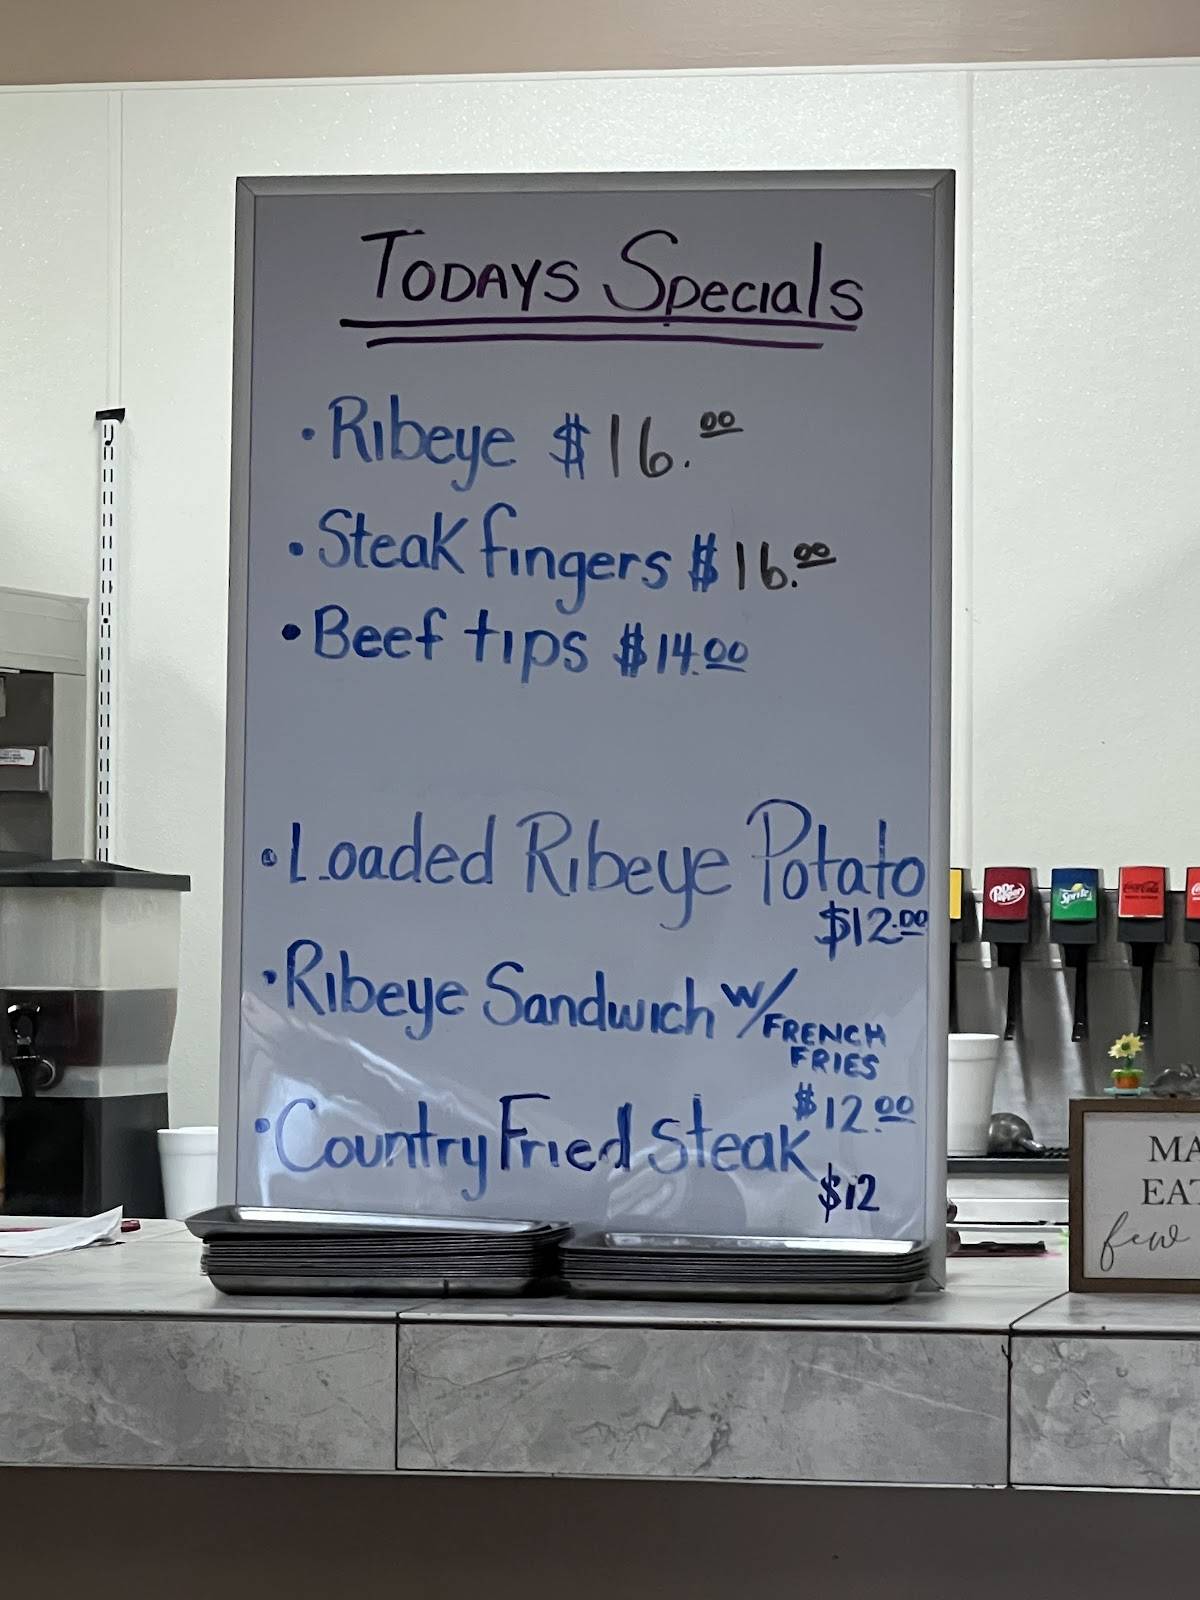 TODAYS Specials
• Ribeye $16.00
• Steak fingers $16.00
• Beef tips $14.00
• Loaded Ribeye Potato
$12.00
• Ribeye Sandwich w/ FRENCH
FRIES
$12.00
• Country Fried Steak
$12
Dr Pepper
Sprite
Coca-Cola
MA
EAT
few